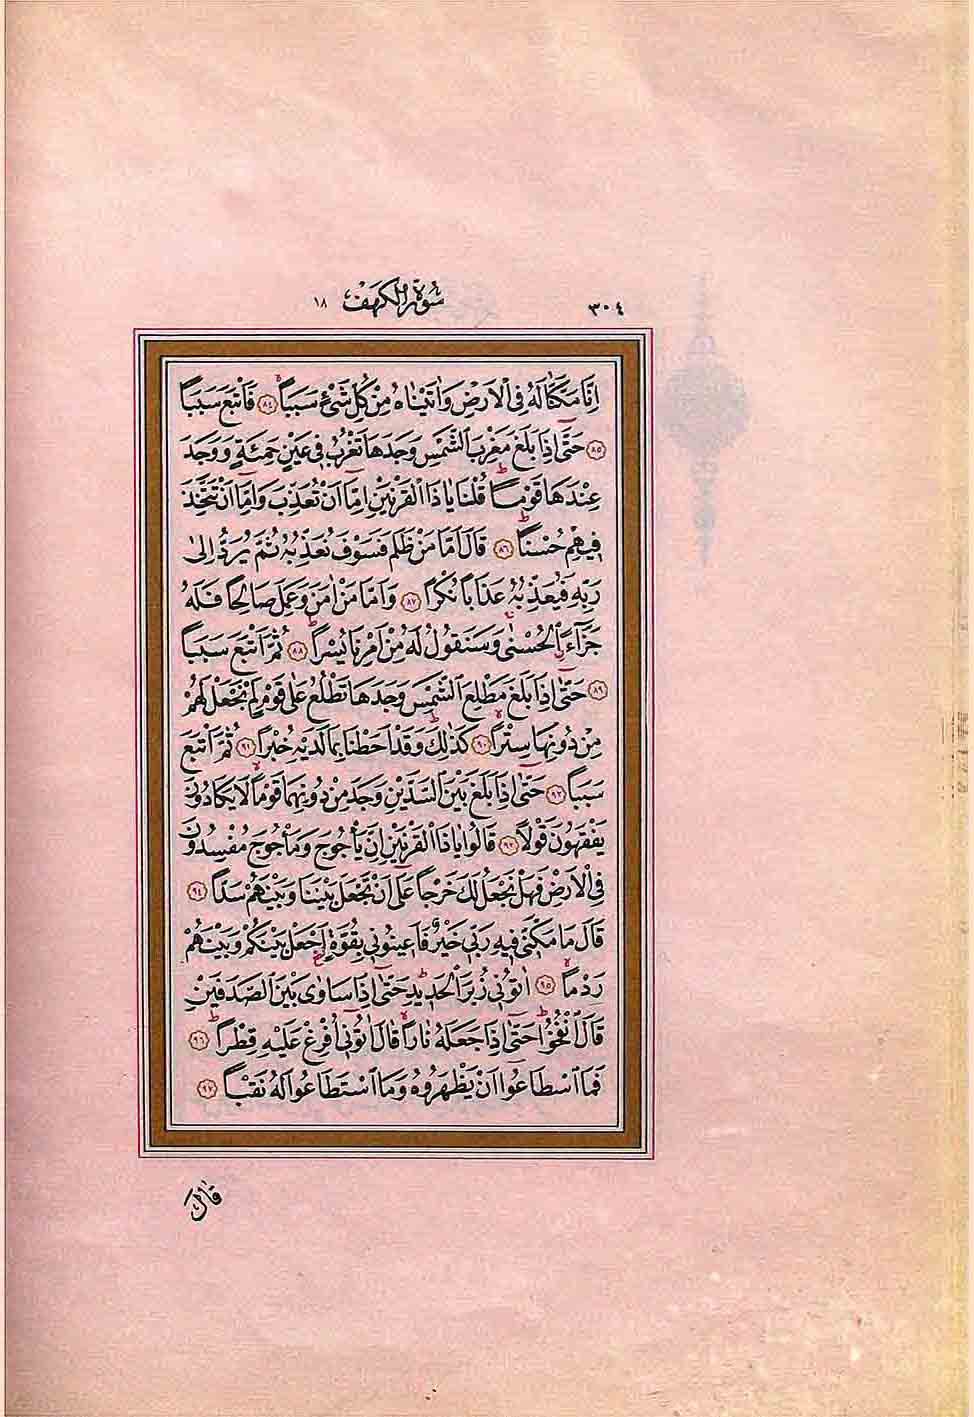 ٣٠٤ سُورَةُ الْكَهْفِ ١٨
اِنَّا مَكَّنَّا لَهُ فِى الْاَرْضِ وَاٰتَيْنَاهُ مِنْ كُلِّ شَىْءٍ سَبَبًاۙ ﴿٨٤﴾ فَاَتْبَعَ سَبَبًا
﴿٨٥﴾ حَتّٰٓى اِذَا بَلَغَ مَغْرِبَ الشَّمْسِ وَجَدَهَا تَغْرُبُ فِى عَيْنٍ حَمِئَةٍ وَوَجَدَ
عِنْدَهَا قَوْمًاۜ قُلْنَا يَا ذَا الْقَرْنَيْنِ اِمَّٓا اَنْ تُعَذِّبَ وَاِمَّٓا اَنْ تَتَّخِذَ
فِيهِمْ حُسْنًاۜ ﴿٨٦﴾ قَالَ اَمَّا مَنْ ظَلَمَ فَسَوْفَ نُعَذِّبُهُ ثُمَّ يُرَدُّ اِلٰى
رَبِّهِ فَيُعَذِّبُهُ عَذَابًا نُكْرًا ﴿٨٧﴾ وَاَمَّا مَنْ اٰمَنَ وَعَمِلَ صَالِحًا فَلَهُ
جَزَٓاءًۨ الْحُسْنٰىۚ وَسَنَقُولُ لَهُ مِنْ اَمْرِنَا يُسْرًاۜ ﴿٨٨﴾ ثُمَّ اَتْبَعَ سَبَبًا
﴿٨٩﴾ حَتّٰٓى اِذَا بَلَغَ مَطْلِعَ الشَّمْسِ وَجَدَهَا تَطْلُعُ عَلٰى قَوْمٍ لَمْ نَجْعَلْ لَهُمْ
مِنْ دُونِهَا سِتْرًاۙ ﴿٩٠﴾ كَذٰلِكَۜ وَقَدْ اَحَطْنَا بِمَا لَدَيْهِ خُبْرًا ﴿٩١﴾ ثُمَّ اَتْبَعَ
سَبَبًا ﴿٩٢﴾ حَتّٰٓى اِذَا بَلَغَ بَيْنَ السَّدَّيْنِ وَجَدَ مِنْ دُونِهِمَا قَوْمًاۙ لَا يَكَادُونَ
يَفْقَهُونَ قَوْلًا ﴿٩٣﴾ قَالُوا يَا ذَا الْقَرْنَيْنِ اِنَّ يَأْجُوجَ وَمَأْجُوجَ مُفْسِدُونَ
فِى الْاَرْضِ فَهَلْ نَجْعَلُ لَكَ خَرْجًا عَلٰٓى اَنْ تَجْعَلَ بَيْنَنَا وَبَيْنَهُمْ سَدًّا ﴿٩٤﴾
قَالَ مَا مَكَّنِّى فِيهِ رَبِّى خَيْرٌ فَاَعِينُونِى بِقُوَّةٍ اَجْعَلْ بَيْنَكُمْ وَبَيْنَهُمْ
رَدْمًاۙ ﴿٩٥﴾ اٰتُونِى زُبَرَ الْحَدِيدِۜ حَتّٰٓى اِذَا سَاوٰى بَيْنَ الصَّدَفَيْنِ
قَالَ انْفُخُواۜ حَتّٰٓى اِذَا جَعَلَهُ نَارًاۙ قَالَ اٰتُونِٓى اُفْرِغْ عَلَيْهِ قِطْرًاۜ ﴿٩٦﴾
فَمَا اسْطَاعُٓوا اَنْ يَظْهَرُوهُ وَمَا اسْتَطَاعُوا لَهُ نَقْبًا ﴿٩٧﴾
قَالَ